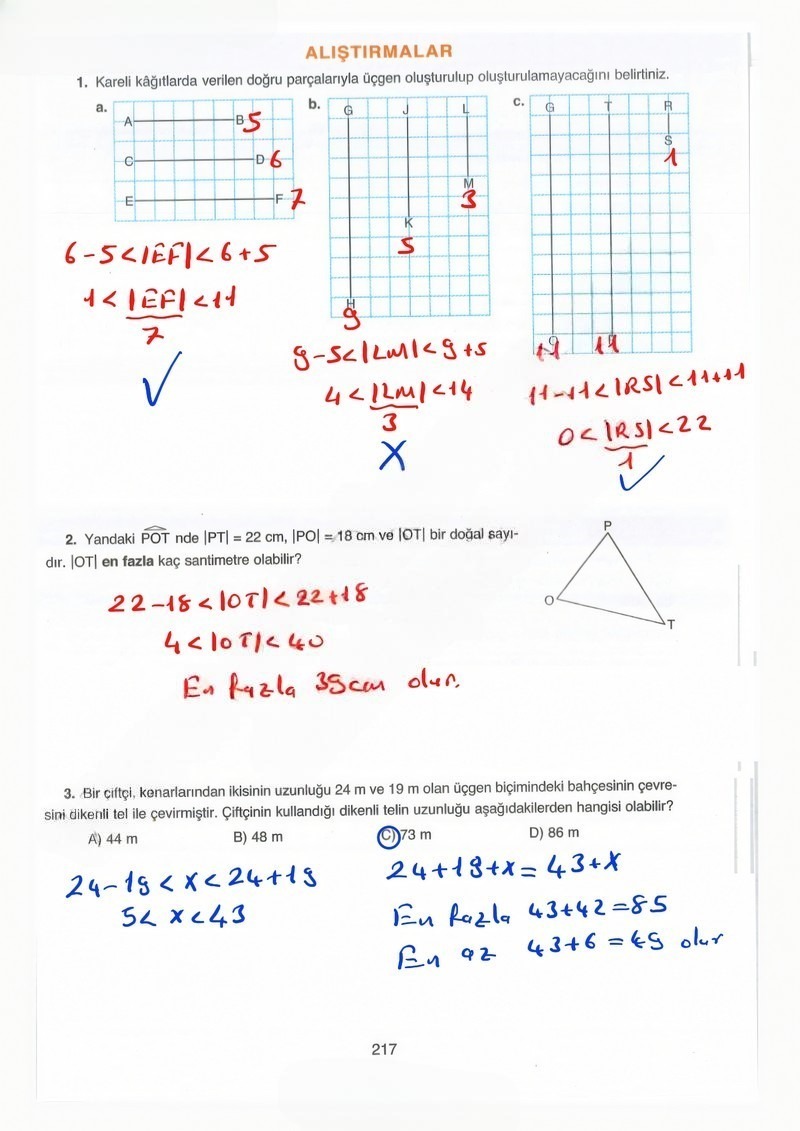 ALIŞTIRMALAR
1. Kareli kâğıtlarda verilen doğru parçalarıyla üçgen oluşturulup oluşturulamayacağını belirtiniz.
a.
A B 5
C D 6
E F 7
6-5<|EF|<6+5
1<|EF|<11
7
✓
b.
G J L
M
3
K
5
H
9
9-5<|LM|<9+5
4<|LM|<14
3
X
c.
G T R
S
1
11 11
11-11<|RS|<11+11
0<|RS|<22
1
✓
2. Yandaki POT nde |PT| = 22 cm, |PO| = 18 cm ve |OT| bir doğal sayı-
dır. |OT| en fazla kaç santimetre olabilir?
P
O
T
22-18<|OT|<22+18
4<|OT|<40
En fazla 39cm olur.
3. Bir çiftçi, kenarlarından ikisinin uzunluğu 24 m ve 19 m olan üçgen biçimindeki bahçesinin çevre-
sini dikenli tel ile çevirmiştir. Çiftçinin kullandığı dikenli telin uzunluğu aşağıdakilerden hangisi olabilir?
A) 44 m B) 48 m C) 73 m D) 86 m
24-19<x<24+19
5<x<43
24+19+x=43+x
En fazla 43+42=85
En az 43+6=49 olur
217